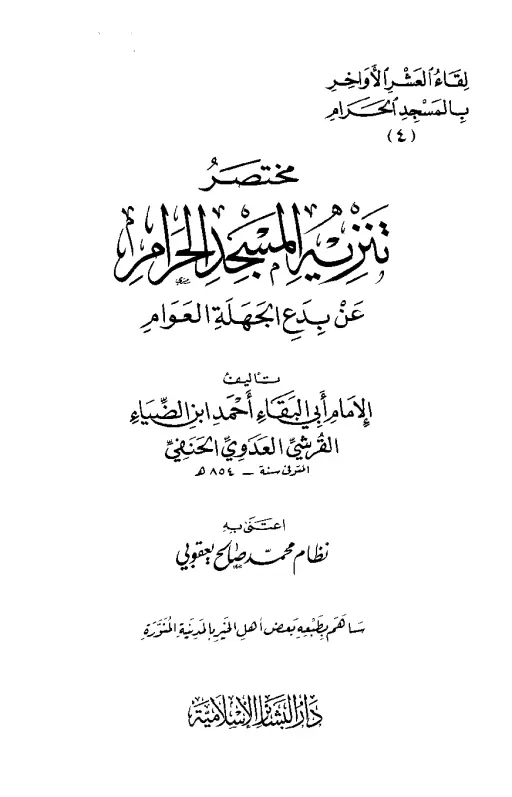 لِقَاءُ العَشْرِ الأَوَاخِرِ
بِالمَسْجِدِ الحَرَامِ
(٤)
مختصَرُ
تَنْزِيْهِ المَسْجِدِ الحَرَامِ
عَنْ بِدَعِ الجَهَلَةِ العَوَامِ
تأليف
الإمَام أَبِي البَقَاءِ أَحْمَد ابن الضِّيَاءِ
القُرَشِيِّ العَدَوِيِّ الحَنَفِيِّ
المتوفى سنة - ٨٥٤ هـ
اعتنى به
نظام محمد صَالح يعقوبي
سَاهَم بطَبْعِهِ بَعض أهل الخَيْر بالمَدينَةِ المُنَوَّرَةِ
دَارُ البَشَائِرِ الإِسْلَامِيَّة